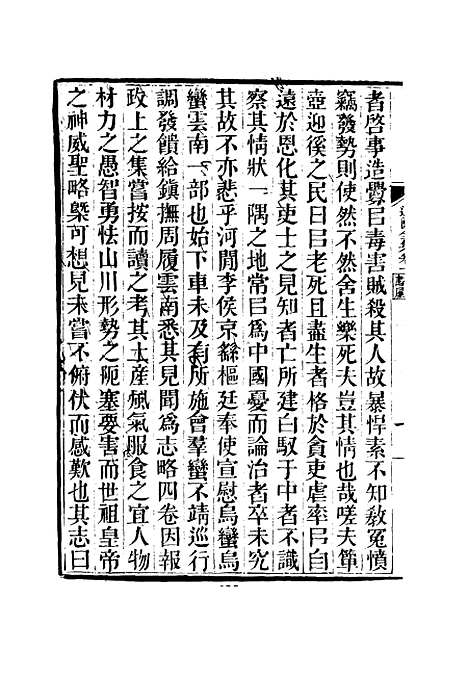 者啓事造釁㠯毒害賊殺其人故暴悍素不知敎冤憤
竊發勢則使然不然舍生樂死夫豈其情也哉嗟夫簞
壺迎後之民日㠯老死且盡生者格於貪吏虐率㠯自
遠於恩化其吏士之見知者亡所建白馭于中者不識
察其情狀一隅之地常㠯爲中國憂而論治者卒未究
其故不亦悲乎河閒李侯京繇樞廷奉使宣慰烏蠻烏
蠻雲南一部也始下車未及有所施會羣蠻不靖巡行
調發饋給鎭撫周履雲南悉其見聞爲志略四卷因報
政上之集嘗按而讀之考其土產風氣服食之宜人物
材力之愚智勇怯山川形勢之阨塞要害而世祖皇帝
之神威聖略槩可想見未嘗不俯伏而感歎也其志曰